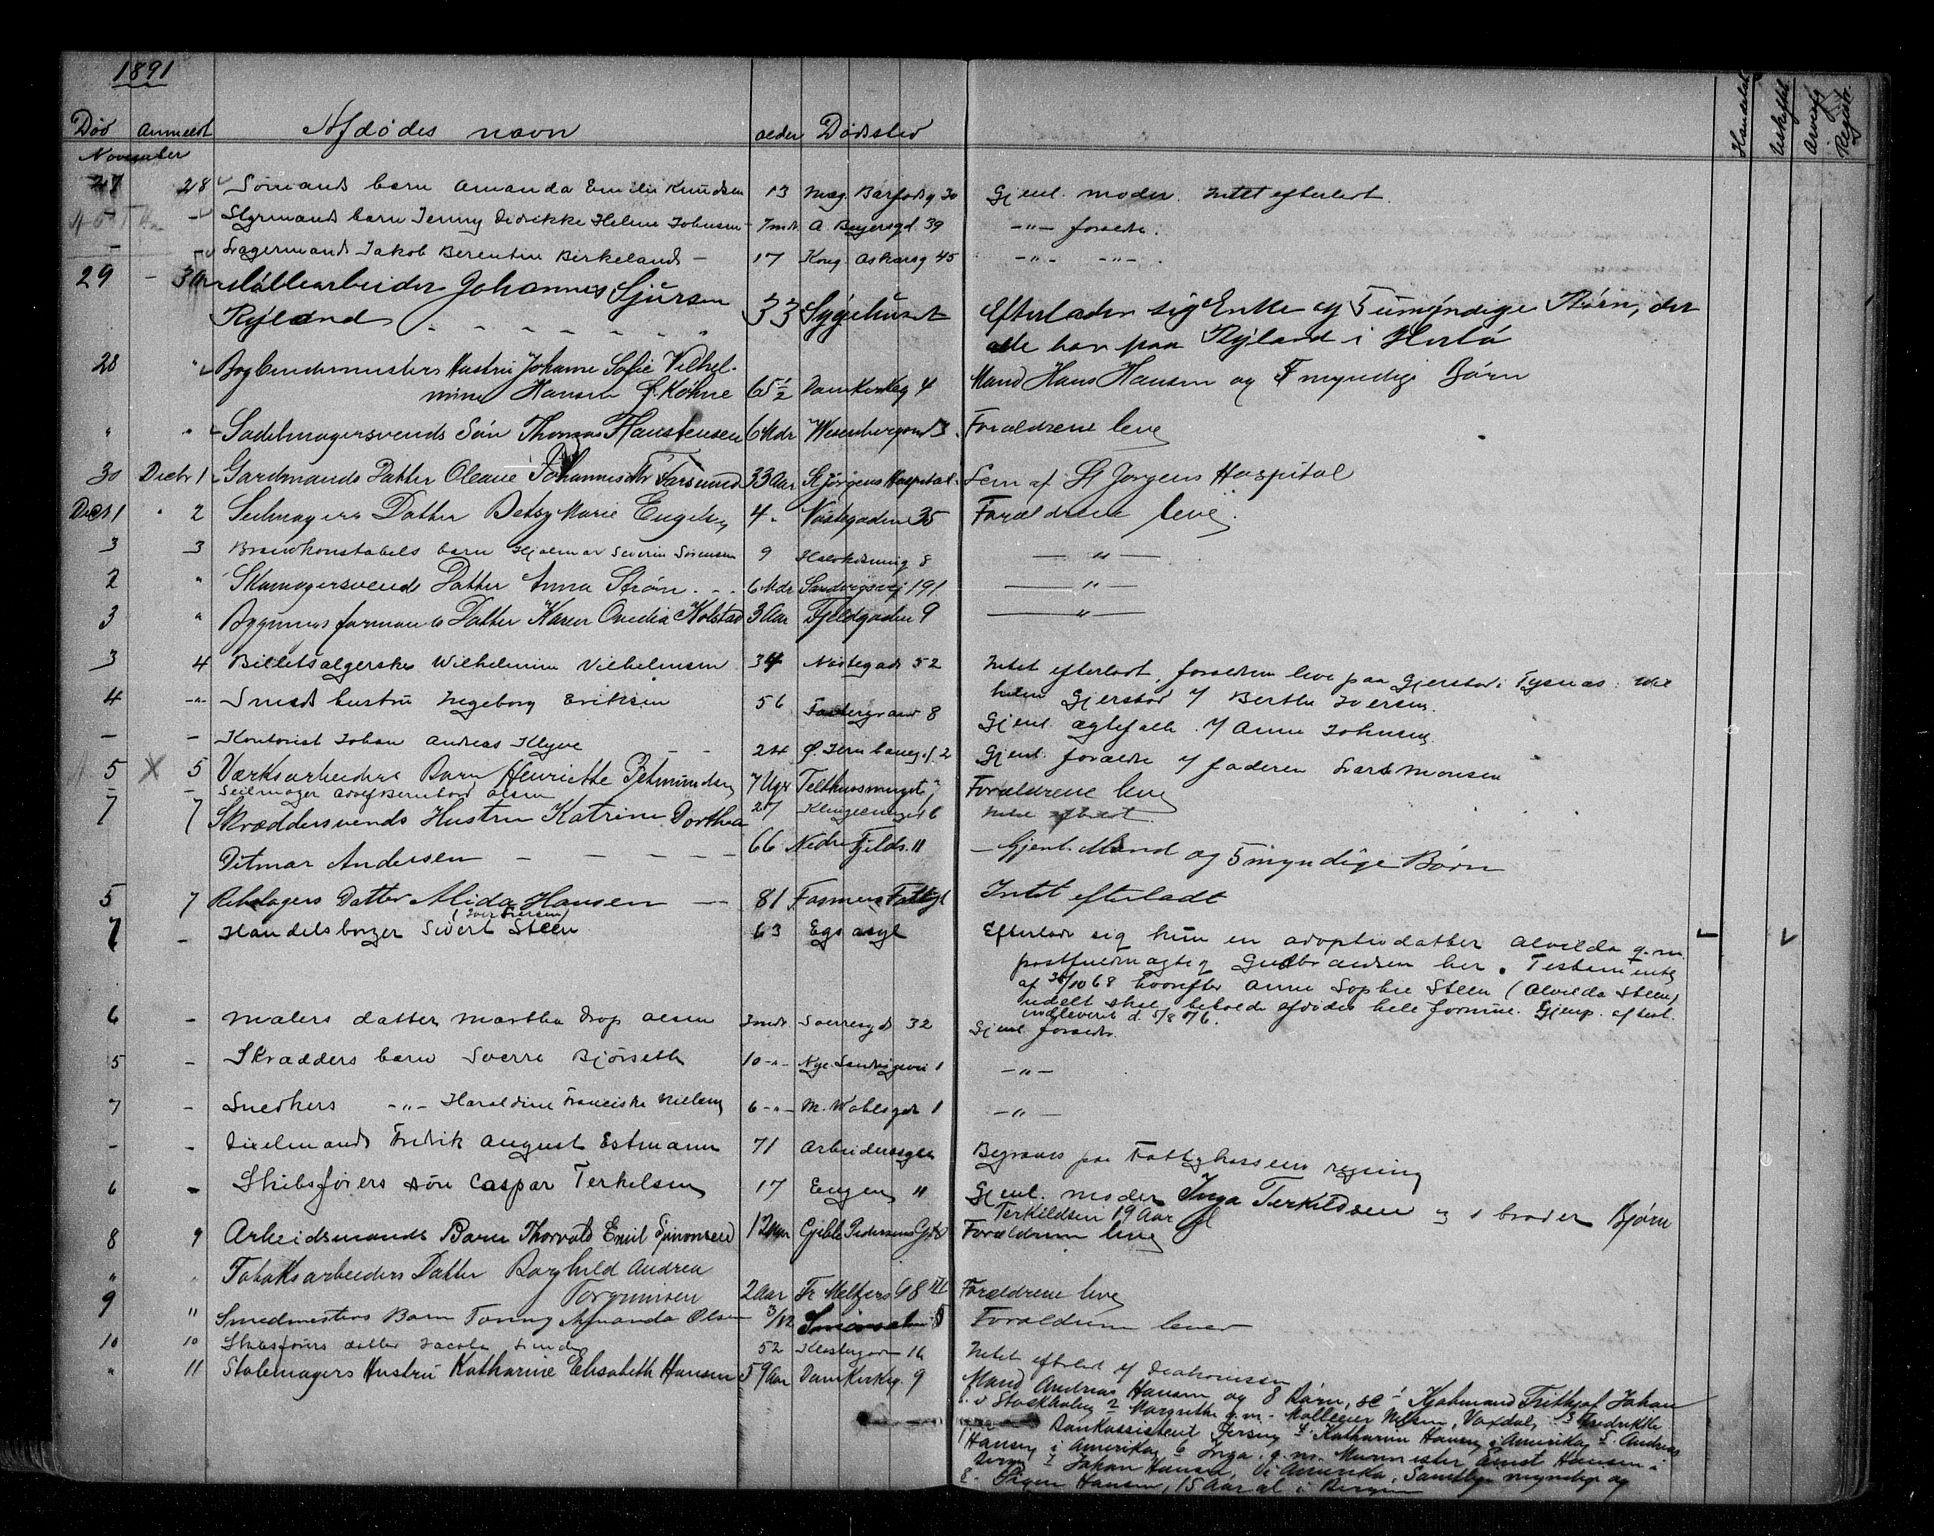 1891
Død Anmeldt Afdødes navn alder Dødssted Handelsb. Udskiftet Arveafg. Registr.
November
27 28 Sømands barn Amanda Emilie Knudsen 13 Mag. Barfodsg 30 Gjenl. moder. Intet efterladt.
- Styrmands barn Jenny Didrikke Helene Johnsen - 7 mdr A. Beyersgd. 39 -"- forældre.
- - Lagermands Jakob Berentin Birkeland - 17 Kong Oskarsg 45 -"- -"-.
29 - 30 Møllearbeider Johannes Sjursen
Ryland 33 Sygehuset Efterlader sig Enke og 5 umyndige Børn, der
alle bor paa Ryland i Herlø
28 " Bogbindermesters Hustru Johanne Sofie Vilhel-
mine Hansen f. Köhne 65 1/2 Damkirkeg 4 Mand Hans Hansen og 5 myndige Børn
" " Sadelmagersvends Søn Thomas Haustensen 6 Mdr Wesenbergsmd 3 Forældrene leve
30 Decbr 1 Gardmands Datter Oleane Johannesdtr Farsund 33 Aar St Jørgens Hospital Lem af St Jørgens Hospital
Decbr 1 " 2 Seilmagers Datter Betsy Marie Engelsen 4 " Nøstegaden 35 Forældrene leve.
3 3 Brandkonstabels barn Hjalmar Severin Sørensen 9 8 — " —
2 " Skomagersvends Datter Anna Strøm 6 Mdr Sandvigsvej 191 — " —
3 " Bygningsformands Datter Karen Ovedia Kolstad 3 Aar Fjeldgaden 9 — " —
3 4 Billetsælgerske Wilhelmine Vilhelmsen 34 Nøstegade 52 Intet efterladt, forældrene leve paa Gjerstad i Tysnæs: Vil
helm Gjerstad / Berthe Iversen.
4 -"- Smeds hustru Ingeborg Eriksen 56 8 Gjenl. ægtefælle. / Anne Johnsen
- - Kontorist Johan Andreas Klyve 24 Ø. 12 Gjenl. forældre / faderen Lars Monsen
5 X 5 Værksarbeiders Barn Henriette Petmundsen 7 Uger Telthusmuget 5 Forældrene leve
- - Seilmager Adolf Bernhard Olsen 27 6 Intet efterladt.
7 7 Skræddersvends Hustru Katrine Dorthea
Ditmar Andersen 66 Nedre Fjelds. 11 - Gjenl. Mand og 5 myndige Børn
5 7 Rebslagers Datter Alida Hansen 81 Fasmers Fattigh Intet efterladt
(Iver Iversen)
7 - Handelsborger Sivert Steen 63 Egs asyl Efterlader sig kun en adoptivdatter Alvilda g.m.
postfuldmægtig Gudbrandsen her. Testamente
af 30/10 68 hvorefter Anne Sophie Steen (Alvilda Steen)
udelt skal beholde afdødes hele formue. Gjenp. af test.
indleveret d. 5/8 076.
6 - Malers datter Martha Drop Olsen 3 mdr Sverresgd 32 Gjenl. forældre
5 - Skrædders barn Sverre Bjørseth 10 -"- Nye Sandvigsvei 1 -"-
7 - Snedkers -"- Haraldine Franciske Nielsen 6 -"- M. Wahlsgade 1 -"-
- - Fredrik August Estmann 71 Arbeiderasylet Begraves paa Fattigkassens regning
6 - Skibsførers søn Caspar Terkelsen 17 Engen 11 Gjenl. moder Inga Terkildsen og 1 broder Bjørn
Terkildsen 19 Aar gl
8 9 Arbeidsmands Barn Thorvald Emil Simonsen 12 Uger Gjeble Pedersens Gd 8 Forældrene leve
" " Tobaksarbeiders Datter Borghild Andrea
Torgrimsen 2 Aar Fr Meltzers 68 III Forældrene leve
9 " Smedmesters Barn Fanny Amanda Olsen 3/12 5 Forældrene lever
10 10 Skibsførers datter Jacoba Linde 52 Klostergaden 16 Intet efterladt / Diakonissen
" 11 Stolemagers Hustru Katharine Elisabeth Hansen 59 Aar Damkirkeg. 9 Mand Andreas Hansen og 8 Børn, se 1 Kjøbmand Frithjof Johan
i Stockholm, 2 Margrethe g.m. Møller Nilsen, Vaxdal, 3 Fredrikke
Bankassistent Jersing 4 Katharine Hansen i Amerika, 5 Andreas
Hansen i Amerika, 6 Inga, g.m. Murmester Ernst Hansen i
Bergen 7 Johan Hansen, i Amerika, Samtlige myndige og
8. Hansen, 15 Aar gl i Bergen